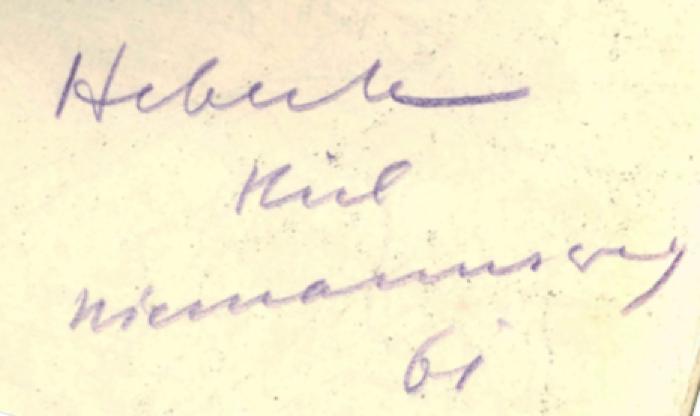 Heberle
Kiel
Niemannsweg
61